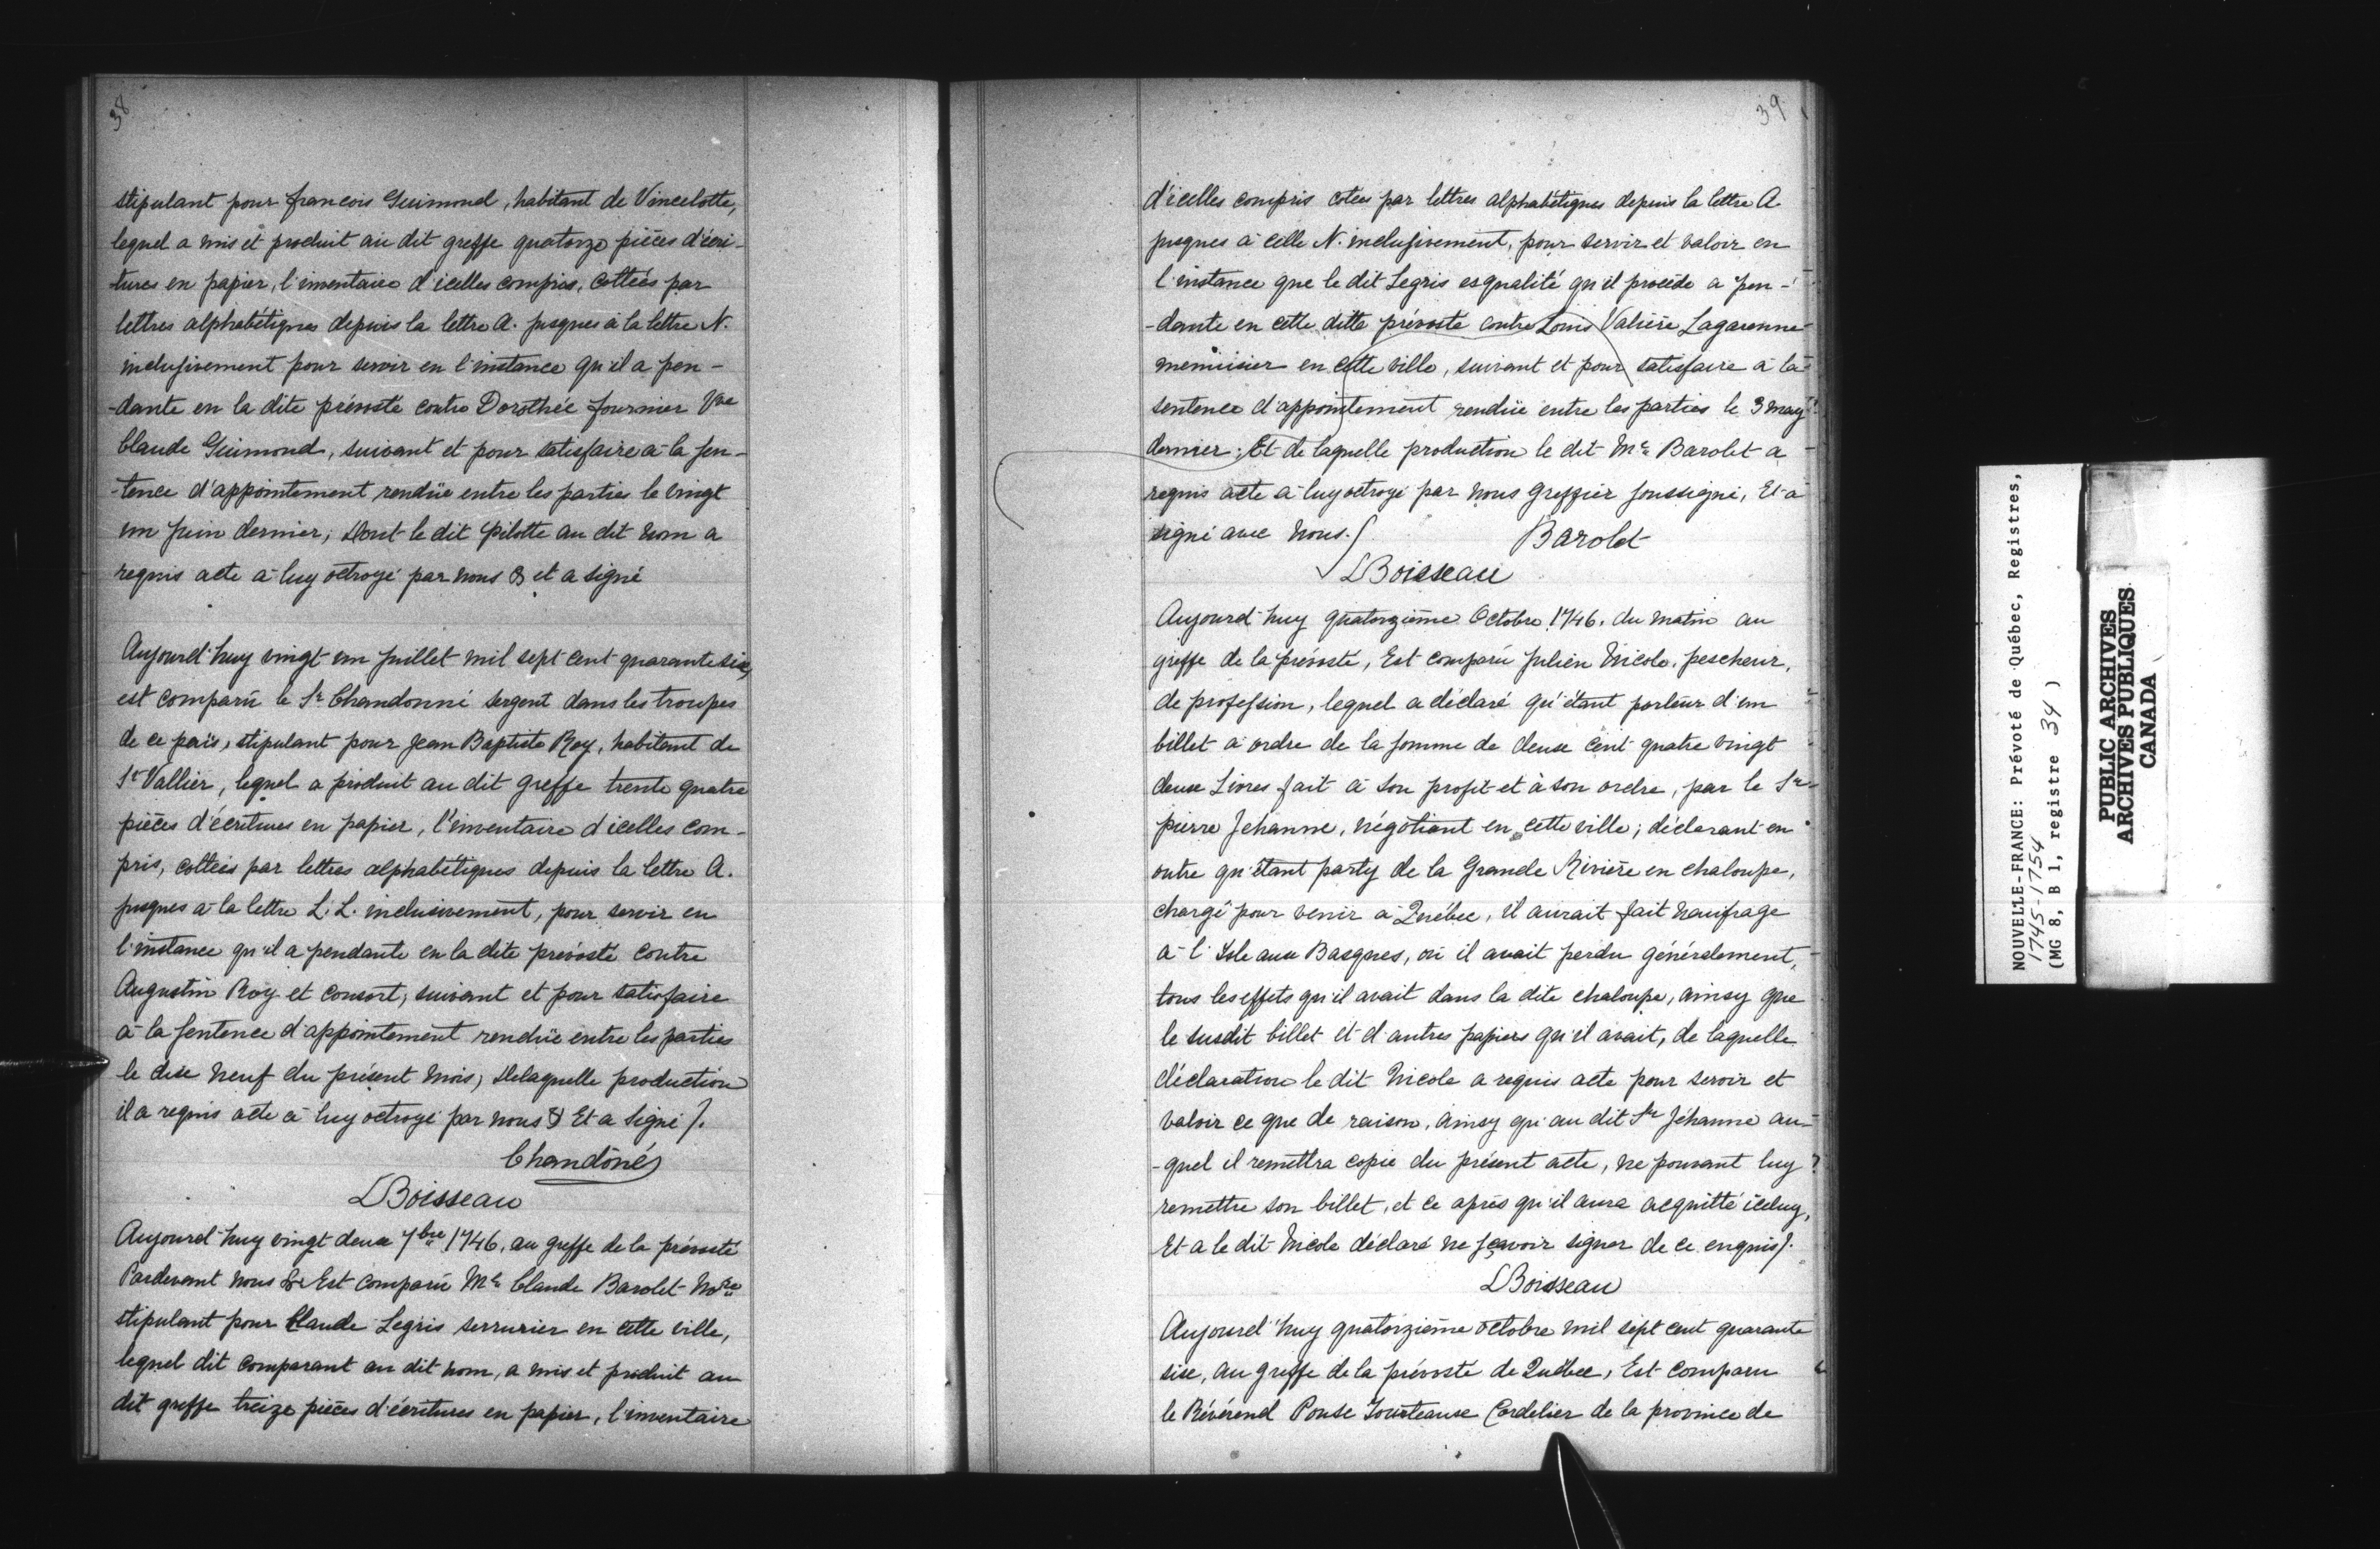 38
stipulant pour francois Guimond, habitant de Vincelotte,
lequel a mis et produit au dit greffe quatorze pièces d'écri-
-tures en papier, l'inventaire d'icelles compris, cottées par
lettres alphabétiques depuis la lettre A. jusques à la lettre N.
inclusivement pour servir en l'instance qu'il a pen-
-dante en la dite prévosté contre Dorothée fournier Vve
Claude Guimond, suivant et pour satisfaire à la sen-
-tence d'appointement rendüe entre les parties le vingt
un juin dernier; Dont le dit Pilotte au dit nom a
requis acte à luy octroyé par nous & et a signé
Aujourd'huy vingt un juillet mil sept cent quarante six,
est comparu le Sr Chandonné sergent dans les troupes
de ce païs, stipulant pour Jean Baptiste Roy, habitant de
St Vallier, lequel a produit au dit greffe trente quatre
pièces d'écritures en papier, l'inventaire d'icelles com-
pris, cottées par lettres alphabétiques depuis la lettre A.
jusques à la lettre L.L. inclusivement, pour servir en
l'instance qu'il a pendante en la dite prévosté contre
Augustin Roy et consort, suivant et pour satisfaire
à la sentence d'appointement rendüe entre les parties
le dix neuf du présent mois, De laquelle production
il a requis acte à luy octroyé par nous & Et a signé /.
Chandôné
LBoisseau
Aujourd'huy vingt deux 7bre 1746, au greffe de la prévosté
Pardevant nous & Est comparu Me Claude Barolet Nore
stipulant pour Claude Legris serrurier en cette ville,
lequel dit comparant au dit nom, a mis et produit au
dit greffe treize pièces d'écritures en papier, l'inventaire
39
d'icelles compris cotées par lettres alphabétiques depuis la lettre A
jusques à celle N. inclusivement, pour servir et valoir en
l'instance que le dit Legris esqualité qu'il procède a pen-
-dante en cette ditte prévosté contre Louis Valière Lagarenne
menuisier en cette ville, suivant et pour satisfaire à la
sentence d'appointement rendüe entre les parties le 3 may
dernier; Et de laquelle production le dit Me Barolet a
requis acte à luy octroyé par nous Greffier soussigné, Et a
signé avec nous./
Barolet
LBoisseau
Aujourd'huy quatorzième Octobre 1746. du matin au
greffe de la prévosté, Est comparu Julien Nicole, pescheur,
de profession, lequel a déclaré qu'étant porteur d'un
billet à ordre de la somme de deux cent quatre vingt
deux Livres fait à son profit et à son ordre, par le Sr
pierre Jehanne, négotiant en cette ville; déclarant en
outre qu'étant party de la Grande Rivière en chaloupe,
chargé pour venir à Québec, il aurait fait naufrage
à l'Isle aux Basques, où il avait perdu généralement,
tous les effets qu'il avait dans la dite chaloupe, ainsy que
le susdit billet et d'autres papiers qu'il avait, de laquelle
déclaration le dit Nicole a requis acte pour servir et
valoir ce que de raison, ainsy qu'au dit Sr Jéhanne au-
-quel il remettra copie du présent acte, ne pouvant luy
remettre son billet, et ce après qu'il aura acquitté iceluy,
Et a le dit Nicole déclaré ne sçavoir signer de ce enquis/.
LBoisseau
Aujourd'huy quatorzième octobre mil sept cent quarante
six, au greffe de la prévosté de Québec, Est comparu
le Révérend Cordelier de la province de
NOUVELLE-FRANCE: Prévoté de Québec, Registres,
1745-1754
(MG 8, B 1, registre 34 )
PUBLIC ARCHIVES
ARCHIVES PUBLIQUES
CANADA